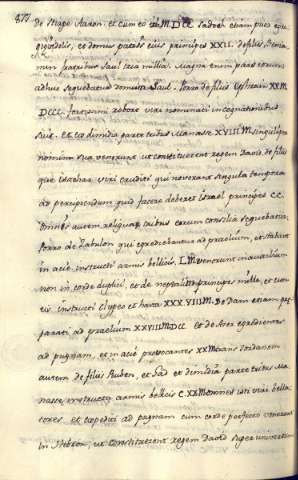 de stirpe Aaron, et cum eo III.M.DCC. Sadoch etiam puer egr.
indolis, et domus patris eius principes XXII. de filiis Benia-
min fratribus Saul tria millia. Magna enim pars eorum
adhuc sequebatur domum Saul. Porro de filiis Ephraim XX.M
DCCC. fortissimi robore viri nominati in cognationibus
suis. Et ex dimidia parte tribus Manasse XVIII.M singuli per
nomina sua venerunt ut constituerent regem David. de filiis
quoque Issachar viri eruditi qui noverant singula tempora
ad percipiendum quid facere deberet Israel principes CC.
omnis autem reliqua tribus eorum consilia sequebatur.
Porro de Zabulon qui egrediebantur ad praelium, et stabant
in acie instructi armis bellicis L.M. venerunt in auxilium
non in corde duplici, et de neptalim principes mille, et cum
eis instructi clypeo et hasta XXXVIIM. De Dan etiam prę-
parati ad praelium XXVIIIM.DC et de Aser egredientes
ad pugnam, et in acie provocantes XXXXM. trans Jordanem
autem de filiis Ruben, et Gad et dimidia parte tribus Ma-
nasse, instructi armis bellicis C.XXM. omnes isti viri bella-
tores et expediti ad pugnam cum corde perfecto venerunt
in Hebron, ut constituerent regem David super universum